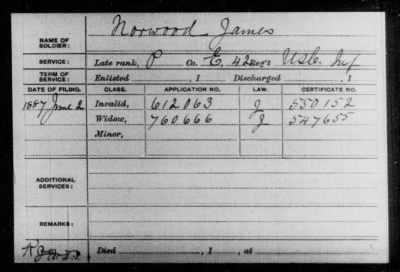 NAME OF SOLDIER: Norwood James
SERVICE: Late rank, P Co. E, 42 Reg't U.S.C. Inf
TERM OF SERVICE: Enlisted , 1 Discharged , 1
DATE OF FILING. CLASS. APPLICATION NO. LAW. CERTIFICATE NO.
1887 June 2 Invalid, 612063 J 550152
Widow, 760666 J 547655
Minor,
ADDITIONAL SERVICES:
REMARKS:
Died , 1 , at